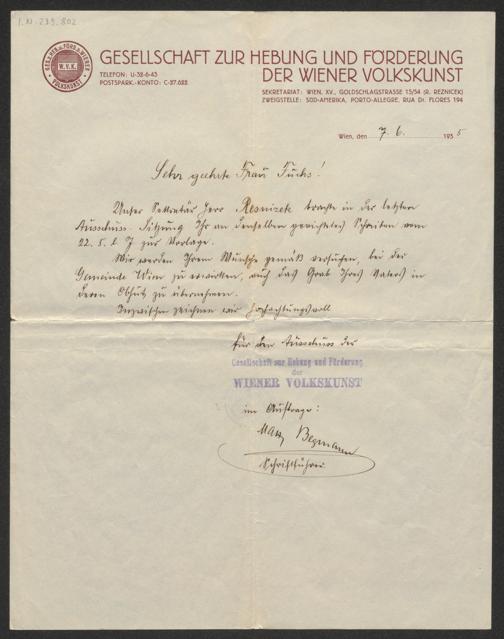 I.N. 239.802
GES. Z. HEB. U. FÖRD. D. WIENER
W.V.K.
VOLKSKUNST
GESELLSCHAFT ZUR HEBUNG UND FÖRDERUNG
DER WIENER VOLKSKUNST
TELEFON: U-38-6-43
POSTSPARK.-KONTO: C-37.688
SEKRETARIAT: WIEN, XV., GOLDSCHLAGSTRASSE 15/54 (R. REZNICEK)
ZWEIGSTELLE: SÜD-AMERIKA, PORTO-ALLEGRE, RUA Dr. FLORES 194
Wien, den 7. 6. 1935
Sehr geehrte Frau Fuchs!
Unser Sekretär Herr Resnizek brachte in der letzten
Ausschuss-Sitzung Ihr an denselben gerichtetes Schreiben vom
22. 5. l. J. zur Vorlage.
Wir werden Ihrem Wunsche gemäß versuchen, bei der
Gemeinde Wien zu erwirken, auch das Grab Ihres Vaters in
deren Obhut zu übernehmen.
Inzwischen zeichnen wir hochachtungsvoll
für den Ausschuss der
Gesellschaft zur Hebung und Förderung
der
WIENER VOLKSKUNST
im Auftrage:
Max Begmann
Schriftführer